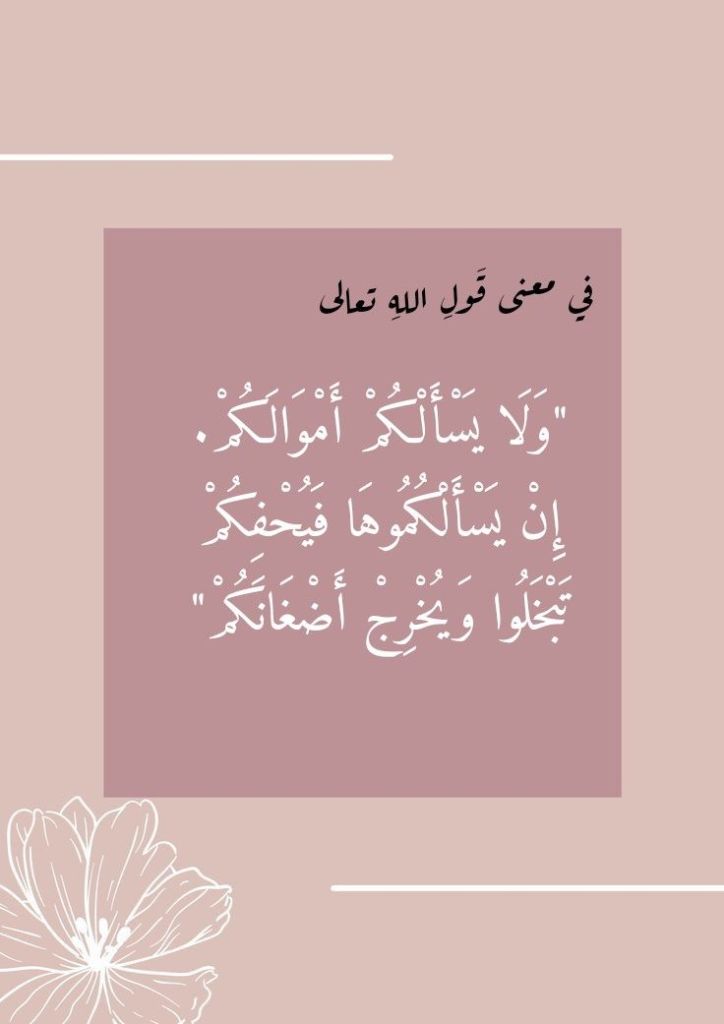 في معنى قَولِ اللهِ تعالى
"وَلَا يَسْأَلْكُمْ أَمْوَالَكُمْ.
إِنْ يَسْأَلْكُمُوهَا فَيُحْفِكُمْ
تَبْخَلُوا وَيُخْرِجْ أَضْغَانَكُمْ"